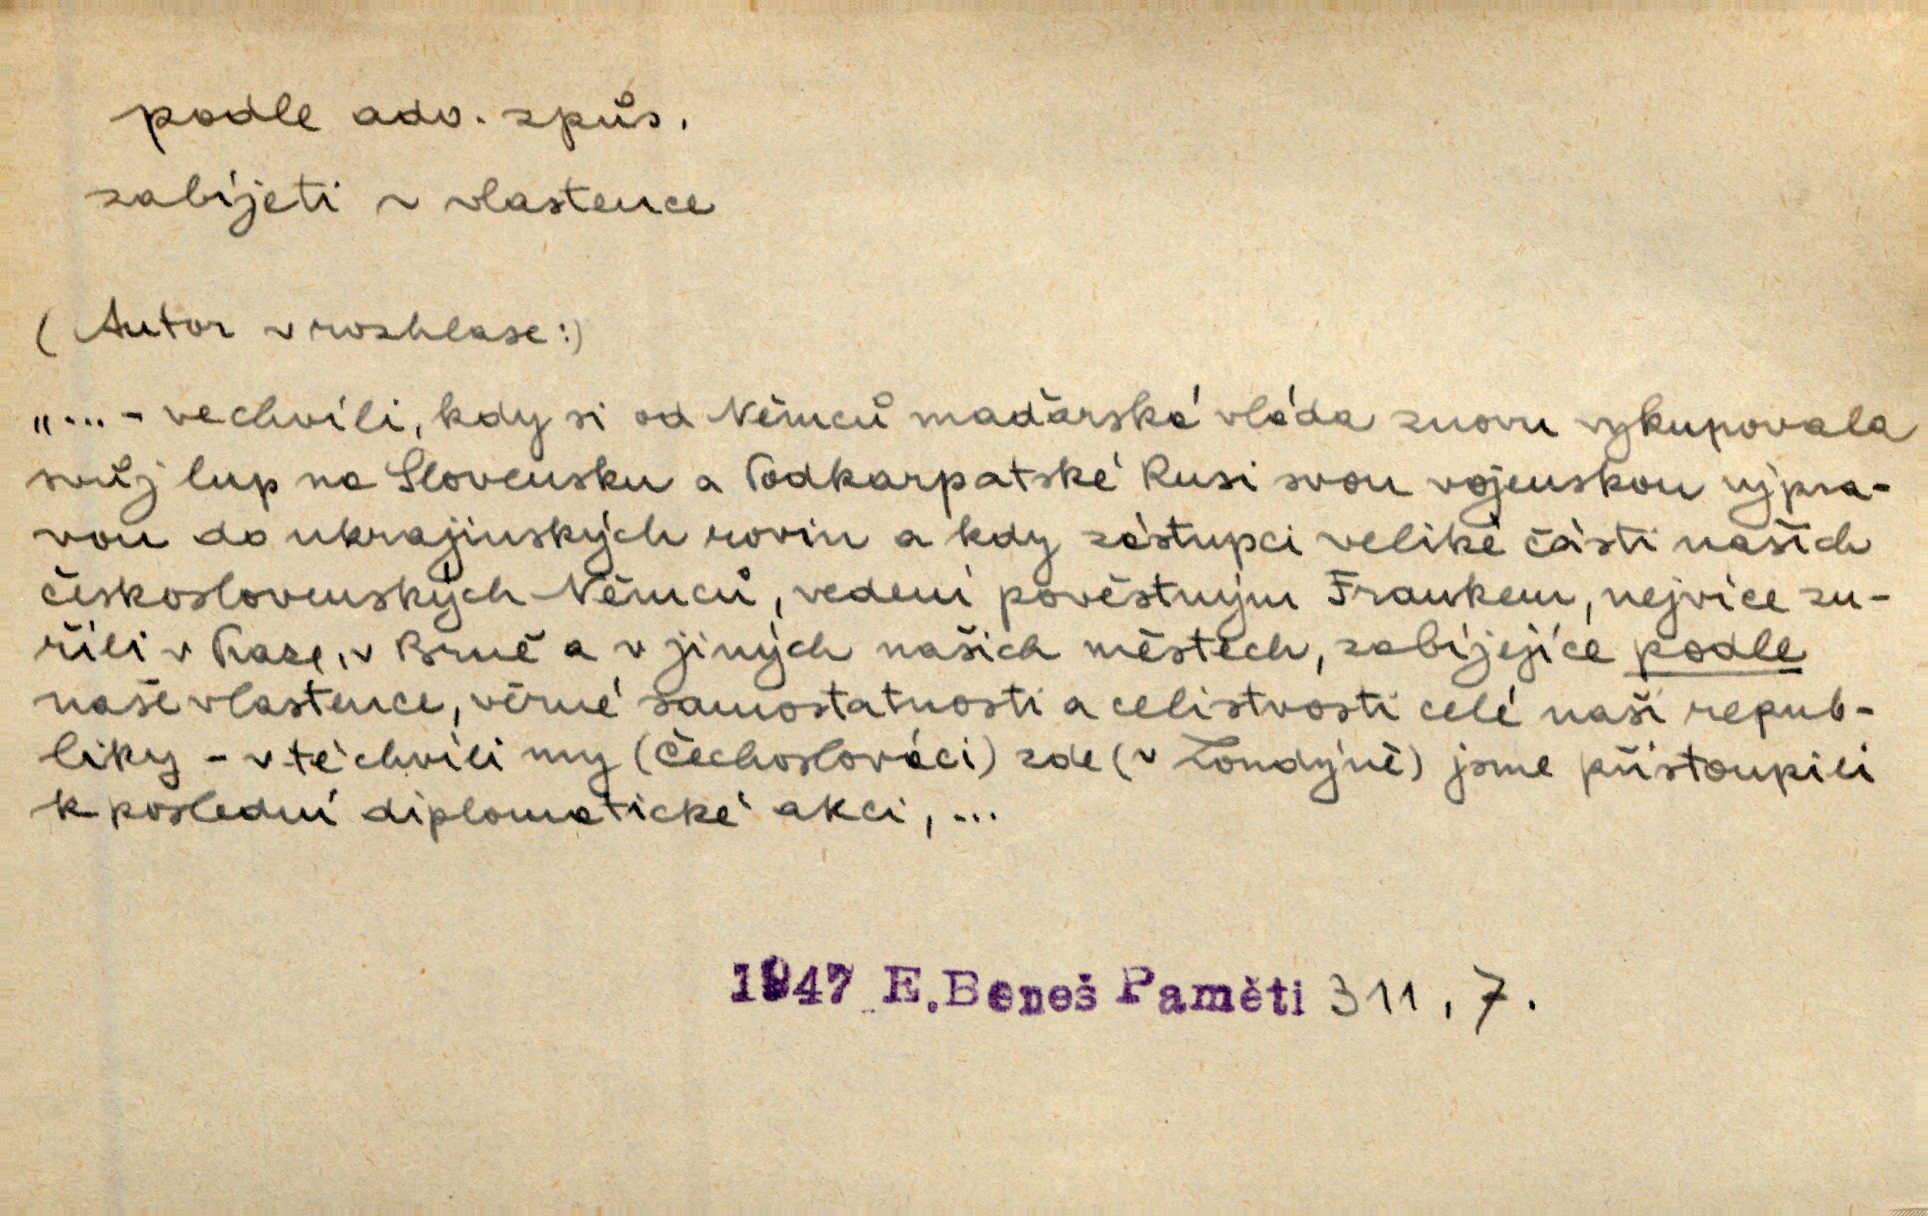 podle adv. způs.
zabíjeti ~ vlastence
(Autor v rozhlase:)
„... - ve chvíli, kdy si od Němců maďarská vláda znovu vykupovala
svůj lup na Slovensku a Podkarpatské Rusi svou vojenskou výpra-
vou do ukrajinských rovin a kdy zástupci veliké části našich
československých Němců, vedení pověstným Frankem, nejvíce zu-
řili v Praze, v Brně a v jiných našich městech, zabíjejíce podle
naše vlastence, věrné samostatnosti a celistvosti celé naší repub-
liky - v té chvíli my (Čechoslováci) zde (v Londýně) jsme přistoupili
k poslední diplomatické akci, ...
1947 E. Beneš Paměti 311, 7.